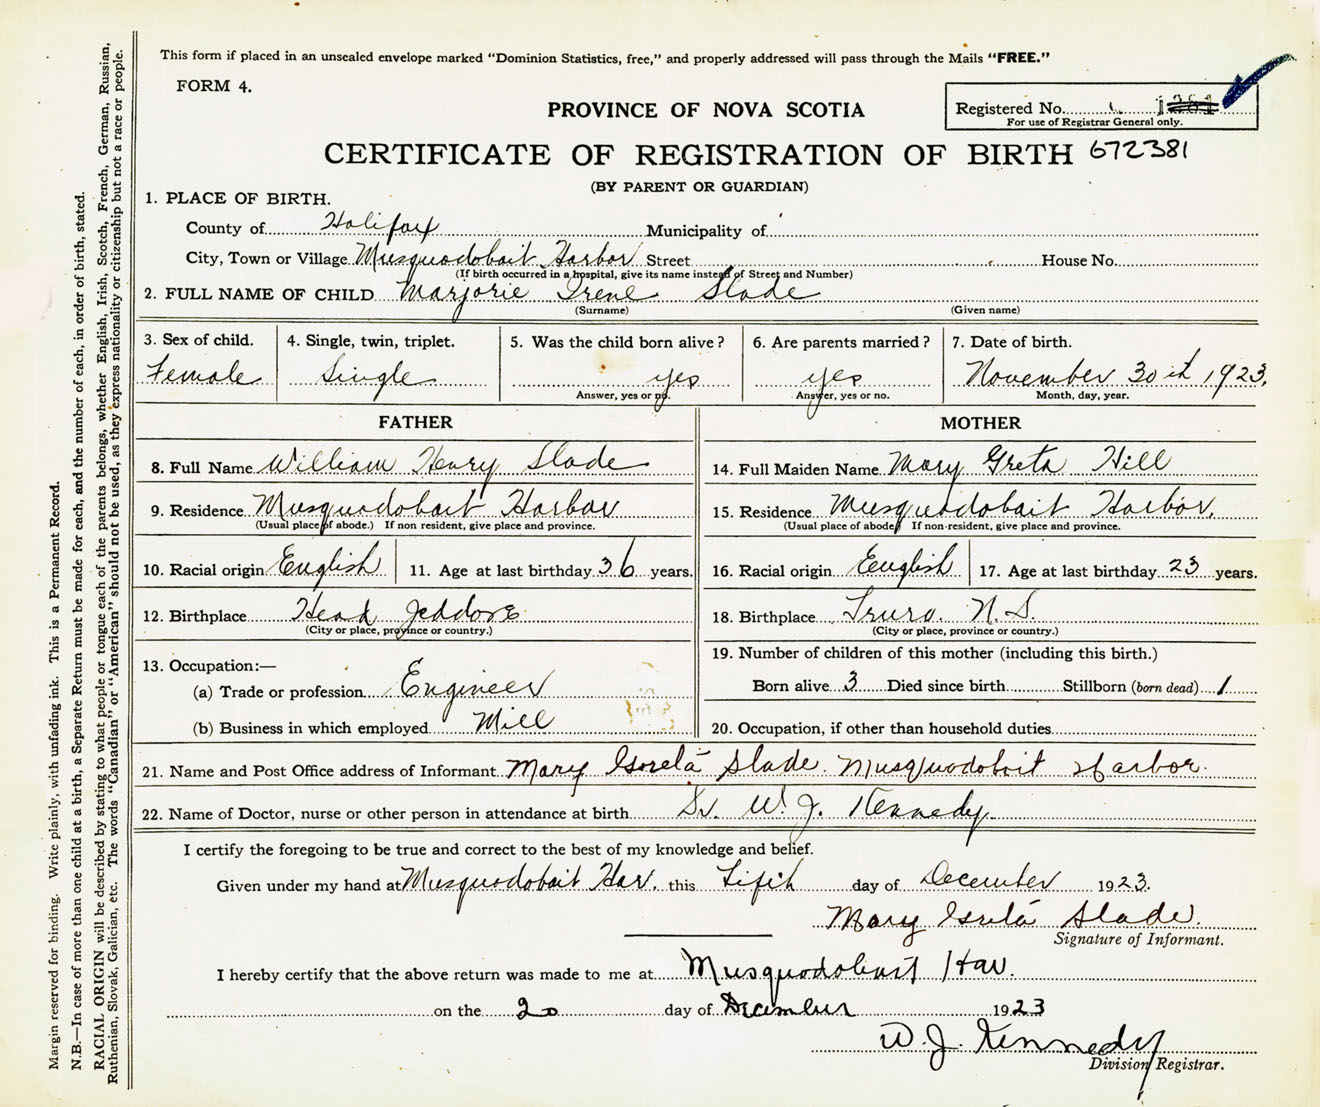 This form if placed in an unsealed envelope marked "Dominion Statistics, free," and properly addressed will pass through the Mails "FREE."
FORM 4.
PROVINCE OF NOVA SCOTIA
Registered No.
For use of Registrar General only.
CERTIFICATE OF REGISTRATION OF BIRTH 672381
(BY PARENT OR GUARDIAN)
1. PLACE OF BIRTH.
County of Halifax Municipality of
City, Town or Village Musquodoboit Harbor Street House No.
(If birth occurred in a hospital, give its name instead of Street and Number)
2. FULL NAME OF CHILD Marjorie Irene Slade
(Surname) (Given name)
3. Sex of child. 4. Single, twin, triplet. 5. Was the child born alive? 6. Are parents married? 7. Date of birth.
Female Single yes yes November 30th 1923.
Answer, yes or no. Answer, yes or no. Month, day, year.
FATHER MOTHER
8. Full Name William Henry Slade 14. Full Maiden Name Mary Greta Hill
9. Residence Musquodoboit Harbor 15. Residence Musquodoboit Harbor.
(Usual place of abode.) If non resident, give place and province. (Usual place of abode) If non-resident, give place and province.
10. Racial origin English 11. Age at last birthday 36 years. 16. Racial origin English 17. Age at last birthday 23 years.
12. Birthplace Head Jeddore 18. Birthplace Truro. N.S.
(City or place, province or country.) (City or place, province or country.)
13. Occupation:— 19. Number of children of this mother (including this birth.)
(a) Trade or profession Engineer Born alive 3 Died since birth Stillborn (born dead) 1
(b) Business in which employed Mill 20. Occupation, if other than household duties
21. Name and Post Office address of Informant Mary Greta Slade. Musquodoboit Harbor.
22. Name of Doctor, nurse or other person in attendance at birth Dr. W. J. Kennedy.
I certify the foregoing to be true and correct to the best of my knowledge and belief.
Given under my hand at Musquodoboit Har. this Fifth day of December 1923.
Mary Greta Slade.
Signature of Informant.
I hereby certify that the above return was made to me at Musquodoboit Har.
on the 20 day of December 1923
W. J. Kennedy
Division Registrar.
Margin reserved for binding. Write plainly, with unfading ink. This is a Permanent Record.
N.B.—In case of more than one child at a birth, a Separate Return must be made for each, and the number of each, in order of birth, stated.
RACIAL ORIGIN will be described by stating to what people or tongue each of the parents belongs, whether English, Irish, Scotch, French, German, Russian,
Ruthenian, Slovak, Galician, etc. The words "Canadian" or "American" should not be used, as they express nationality or citizenship but not a race or people.